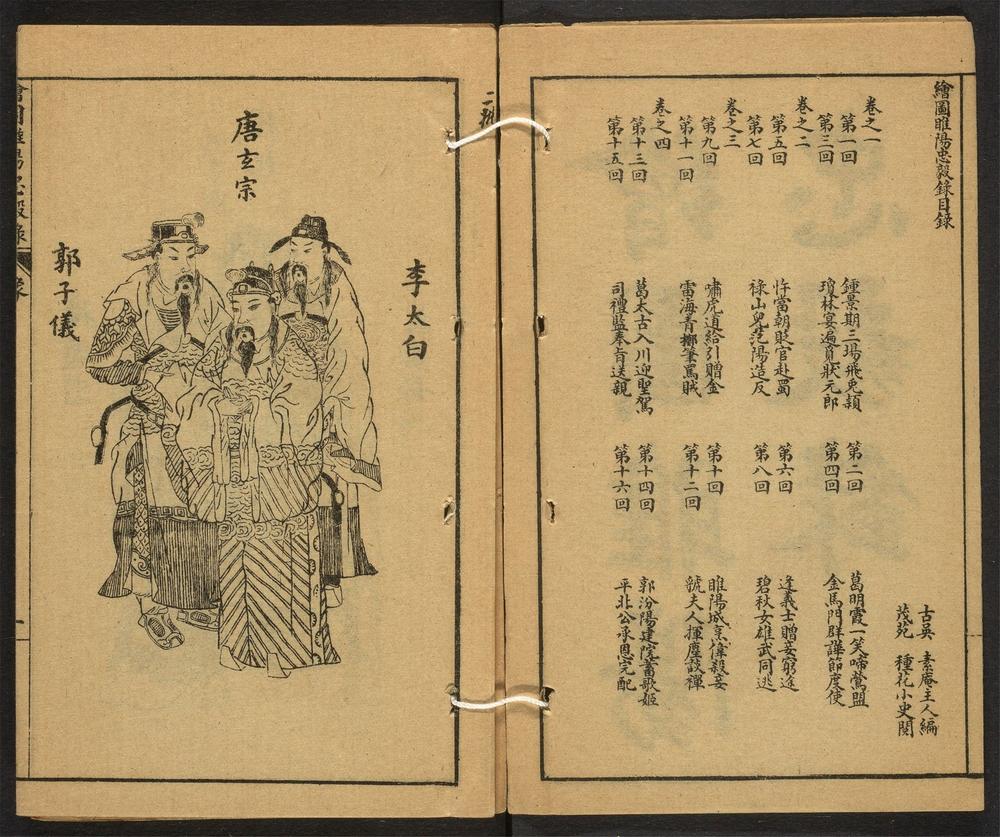 繪圖睢陽忠毅錄目錄
古吳　素庵主人編
茂苑　種花小史閱
卷之一
第一回　鍾景期三場飛兔穎　第二回　葛明霞一笑啼鶯盟
第三回　瓊林宴遍覓狀元郎　第四回　金馬門群譁節度使
卷之二
第五回　忤當朝貶官赴蜀　第六回　逢義士贈妾窮途
第七回　祿山兒范陽造反　第八回　碧秋女雄武同逃
卷之三
第九回　嘯虎道給引贈金　第十回　睢陽城烹僮殺妾
第十一回　雷海青擲箏罵賊　第十二回　虢夫人揮麈談禪
卷之四
第十三回　葛太古入川迎聖駕　第十四回　郭汾陽建院蓄歌姬
第十五回　司禮監奉旨送親　第十六回　平北公承恩完配
李太白
唐玄宗
郭子儀